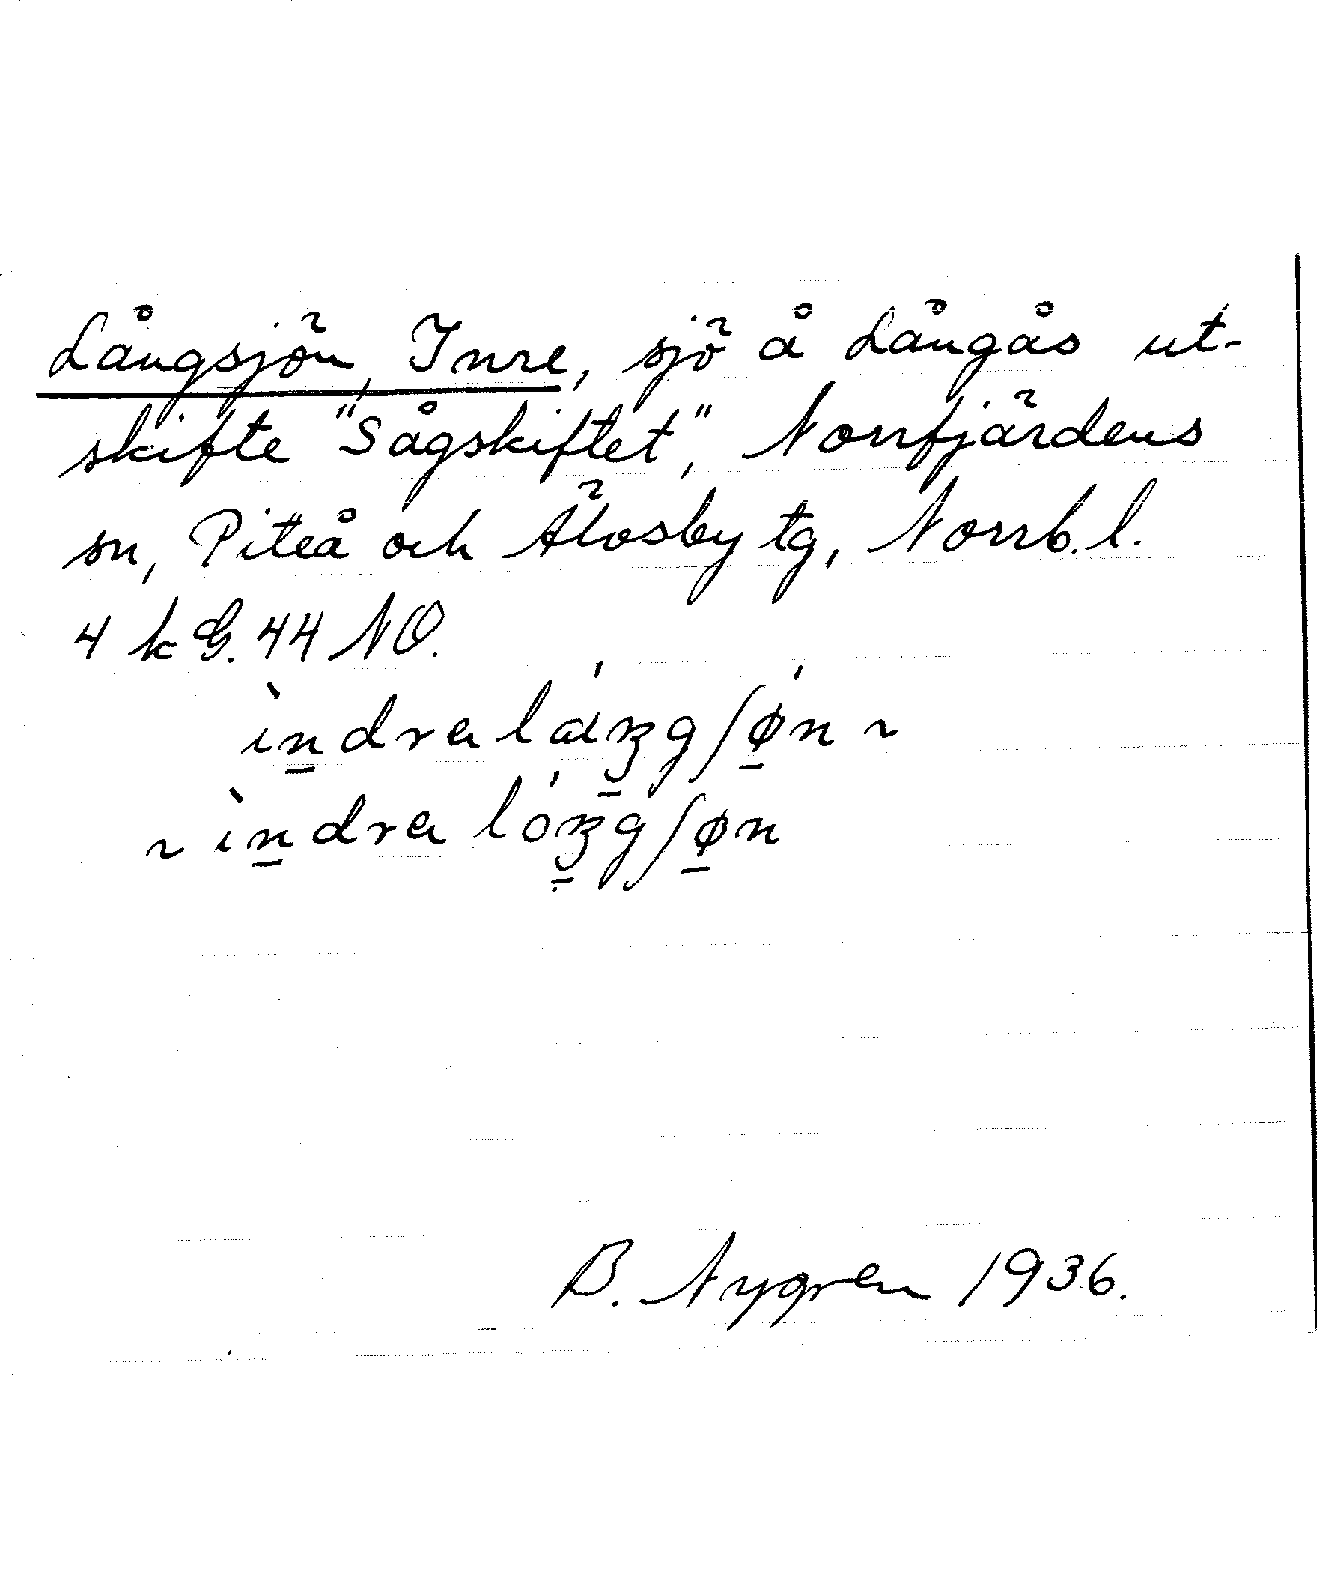 Långsjön, Inre, sjö å Långås ut-
skifte "Sågskiftet", Norrfjärdens
sn, Piteå och Älvsby tg, Norrb. l.
4 k G. 44 NO.
ìn̲dra lɑ́ŋ̲gʃǿ̲n ~
~ ìn̲dra lóŋ̲gʃø̲n
B. Nygren 1936.